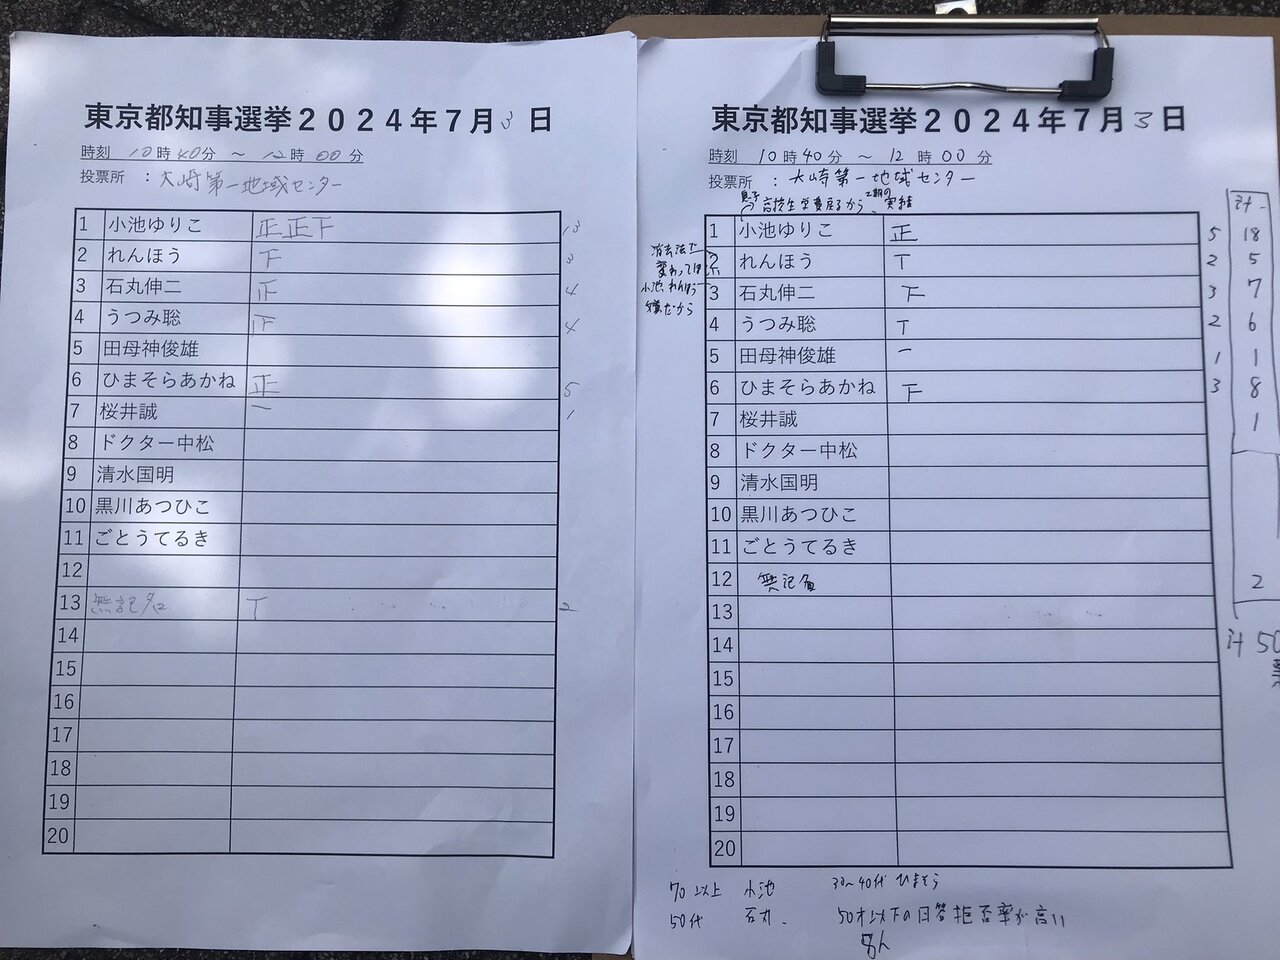 東京都知事選挙2024年7月3日
時刻 10時40分 ~ 12時00分
投票所 :大崎第一地域センター
1 小池ゆりこ 正正下 13
2 れんほう 下 3
3 石丸伸二 4
4 うつみ聡 4
5 田母神俊雄
6 ひまそらあかね 正 5
7 桜井誠 一 1
8 ドクター中松
9 清水国明
10 黒川あつひこ
11 ごとうてるき
12
13 無記名 T 2
14
15
16
17
18
19
20
東京都知事選挙2024年7月3日
時刻 10時40分 ~ 12時00分
投票所 :大崎第一地域センター
息子 高校生学費戻るから 2期の実績
計
1 小池ゆりこ 正 5 18
消去法で
2 れんほう T 2 5
変わって
3 石丸伸二 下 3 7
小池、れんほう
だから
4 うつみ聡 T 2 6
5 田母神俊雄 一 1 1
6 ひまそらあかね 下 3 8
7 桜井誠 1
8 ドクター中松
9 清水国明
10 黒川あつひこ
11 ごとうてるき
12 無記 2
13
14 計50
15
16
17
18
19
20
70以上 小池 30~40代 ひまそら
50代 石丸 50才以下の回答拒否率が高い
8人